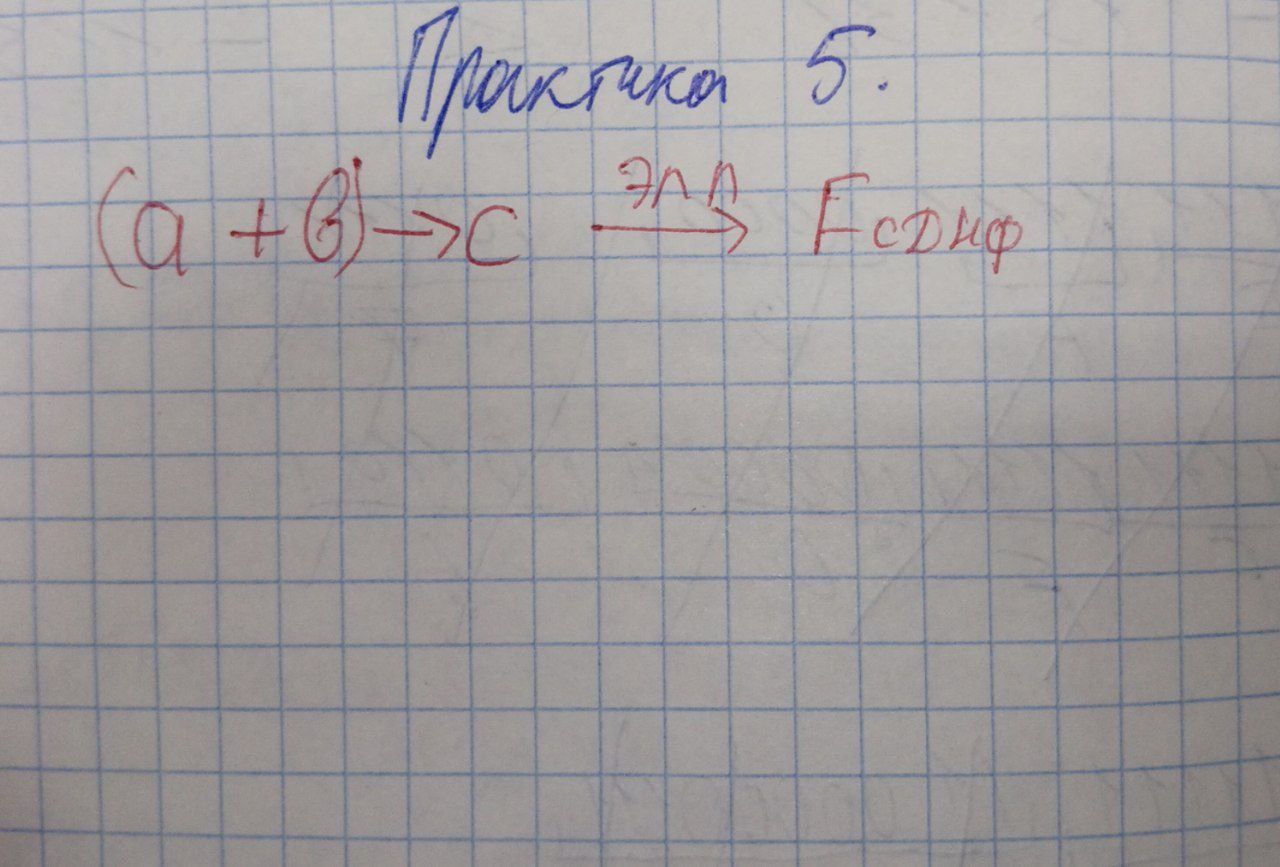 Практика 5.
(a + b) → c ЭЛП → F СДНФ